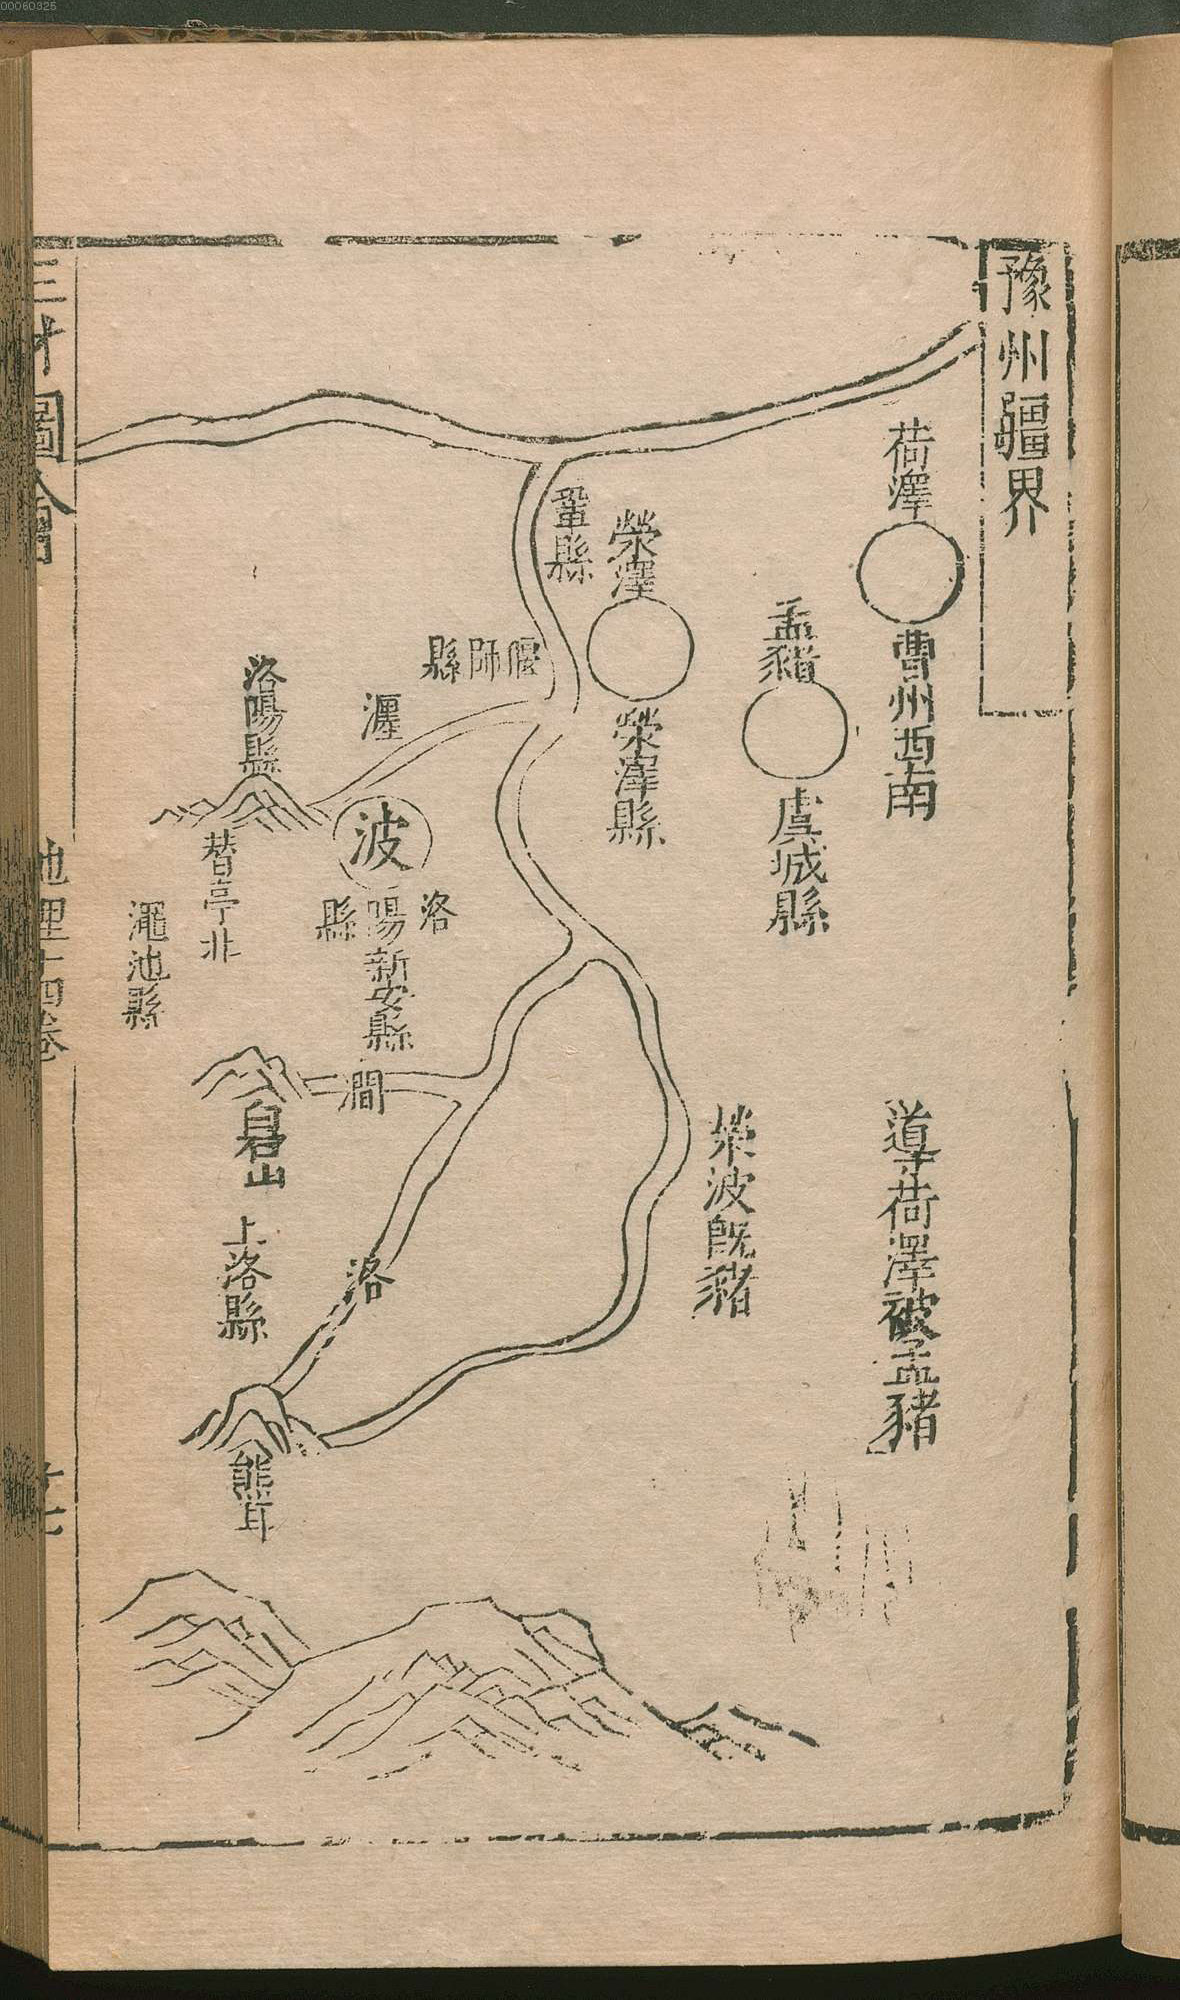 00060325
豫州疆界
荷澤
曹州西南
導荷澤被孟豬
孟豬
虞城縣
滎澤
滎澤縣
滎波既豬
鞏縣
偃師縣
瀍
波
洛陽縣
新安縣
澗
洛
洛陽縣
替亭北
澠池縣
白石山
上洛縣
熊耳
三才圖會
地理十四卷